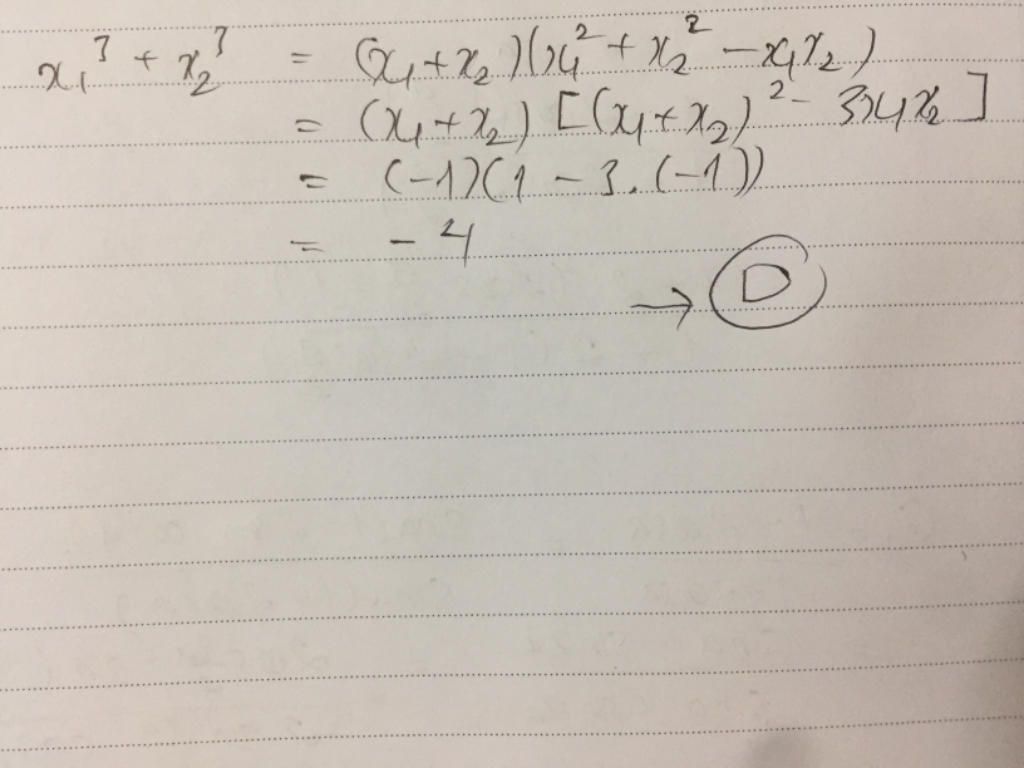 x₁³ + x₂³ = (x₁+x₂)(x₁² + x₂² − x₁x₂)
= (x₁+x₂) [(x₁+x₂)² − 3x₁x₂]
= (−1)(1 − 3.(−1))
= − 4
→ D